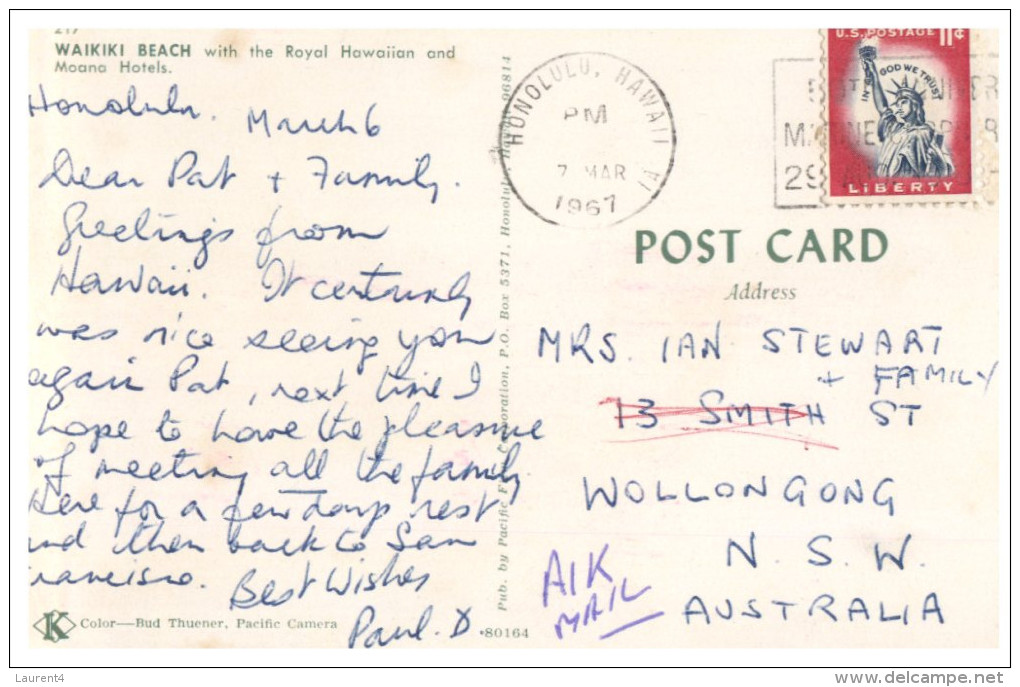 217
WAIKIKI BEACH with the Royal Hawaiian and
Moana Hotels.
Honolulu. March 6
Dear Pat + Family.
Greetings from
Hawaii. It certainly
was nice seeing you
again Pat, next time I
hope to have the pleasure
of meeting all the family.
Here for a few days rest
and then back to San
Francisco. Best Wishes
Paul. D.
K Color—Bud Thuener, Pacific Camera
Pub. by Pacific Corporation, P.O. Box 5371, Honolulu, Hawaii 96814
80164
HONOLULU, HAWAII
PM
7 MAR
1967
U.S. POSTAGE 11¢
IN GOD WE TRUST
LIBERTY
29
POST CARD
Address
MRS. IAN STEWART
+ FAMILY
13 SMITH ST
WOLLONGONG
N. S. W.
AUSTRALIA
AIR
MAIL
Laurent4
www.delcampe.net